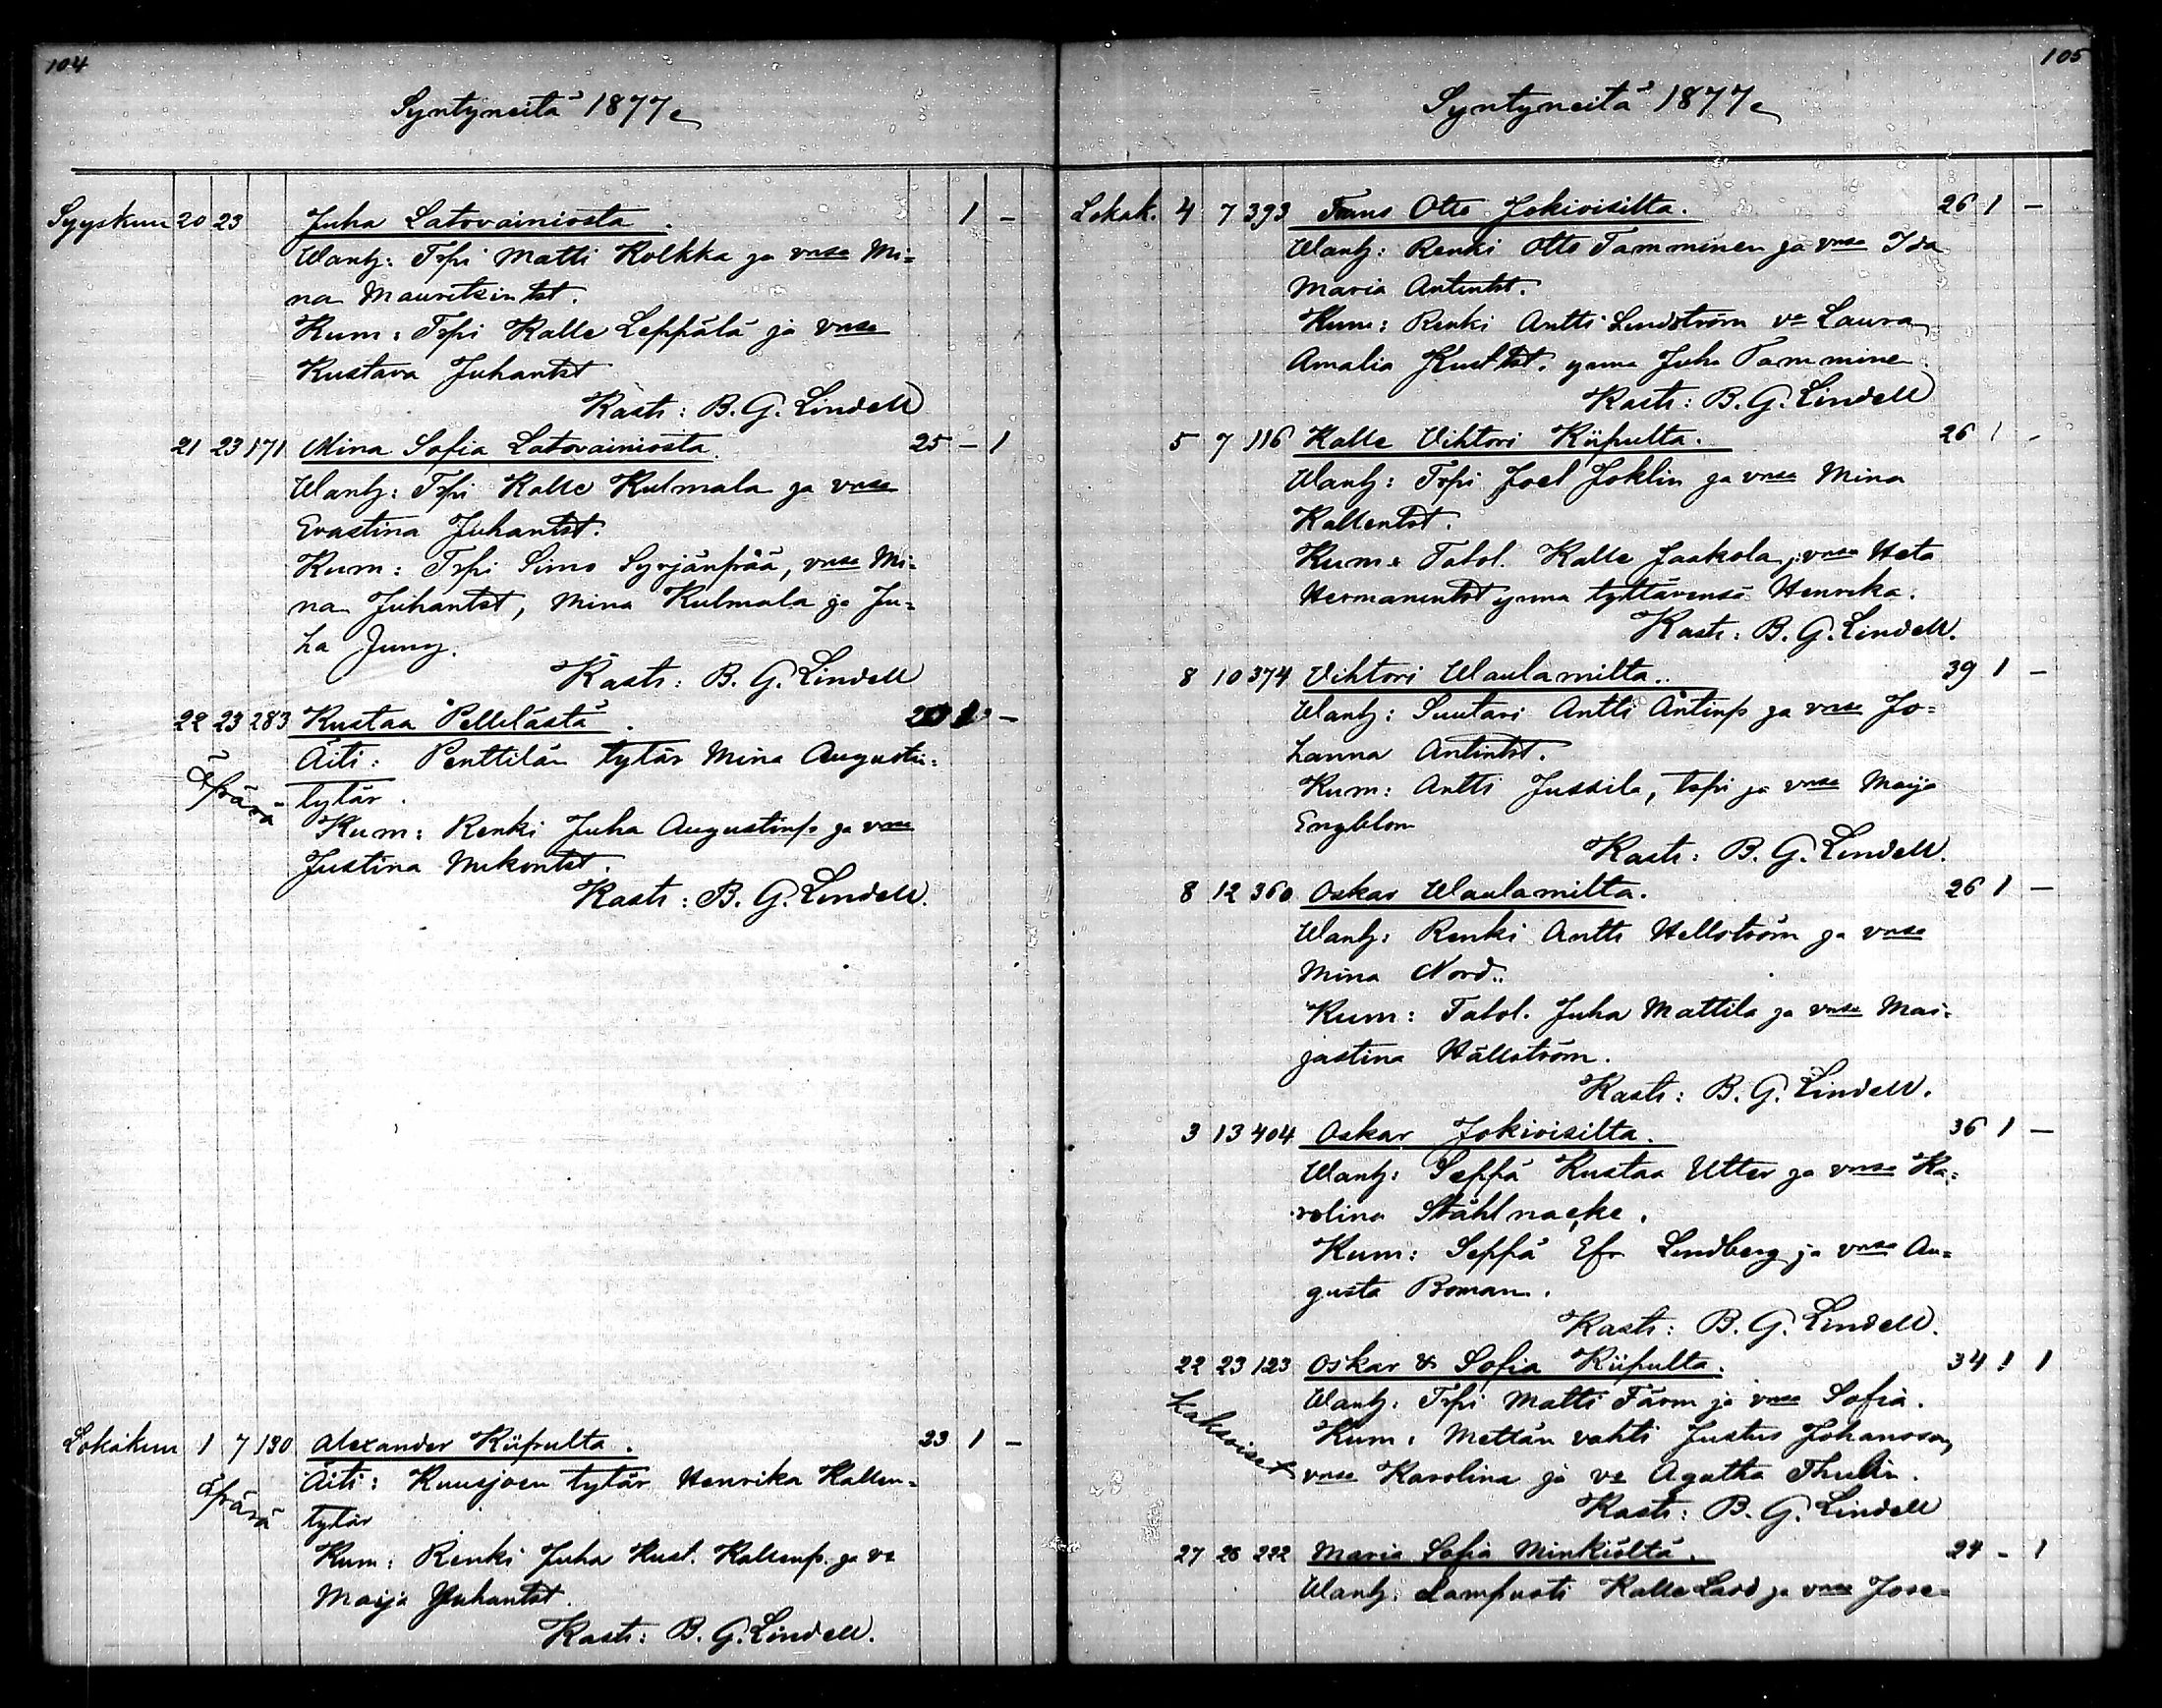 104
Syntyneitä 1877
Syyskuu 20 23 Juha Latovainiosta. 1 –
Wanh: Trpi Matti Kolkka ja vmsa Mi=
na Mauritsintst.
Kum: Trpi Kalle Leppälä ja vmsa
Kustava Juhantst
Kasti: B. G. Lindell
21 23 171 Mina Sofia Latovainiosta. 25 – 1
Wanh: Trpi Kalle Kulmala ja vmsa
Evastina Juhantst.
Kum: Trpi Simo Syrjänpää, vmsa Mi=
na Juhantst, Mina Kulmala ja Ju=
ha Jung.
Kasti: B. G. Lindell
22 23 283 Kustaa Pellelästä. –
Äpärä
Äiti: Penttilän tytär Mina Augustin=
tytär.
Kum: Renki Juha Augustinp. ja vmsa
Justina Mikontst.
Kasti: B. G. Lindell.
Lokakuu 1 7 130 Alexander Kiipulta. 23 1 –
Äpärä
Äiti: Kuusjoen tytär Henrika Kallen=
tytär
Kum: Renki Juha Kust. Kallenp. ja va
Maija Juhantst.
Kasti: B. G. Lindell.
105
Syntyneitä 1877
Lokak. 4 7 393 Frans Otto Jokivisilta. 26 1 –
Wanh: Renki Otto Tamminen ja vmsa Ida
Maria Antintst.
Kum: Renki Antti Lindström va Laura
Amalia Kusttst. ynna Juha Tammine.
Kasti: B. G. Lindell
5 7 116 Kalle Vihtori Kiipulta. 26 1 –
Wanh: Trpi Joel Joklin ja vmsa Mina
Kallentst.
Kum: Talol. Kalle Jaakola, vmsa Heta
Hermanintst ynna tyttärensä Henrika.
Kasti: B. G. Lindell.
8 10 374 Vihtori Waulamilta. 39 1 –
Wanh: Suutari Antti Antinp ja vmsa Jo=
hanna Antintst.
Kum: Antti Jussila, trpi ja vmsa Maija
Engblom
Kasti: B. G. Lindell.
8 12 360 Oskar Waulamilta. 26 1 –
Wanh: Renki Antti Hellström ja vmsa
Mina Nord.
Kum: Talol. Juha Mattila ja vmsa Mai=
jastina Hällström.
Kasti: B. G. Lindell.
3 13 404 Oskar Jokivisilta. 36 1 –
Wanh: Seppä Kustaa Utter ja vmsa Ka=
rolina Ståhlnacke.
Kum: Seppä Efr Lindberg ja vmsa Au=
gusta Boman.
Kasti: B. G. Lindell.
22 23 123 Oskar & Sofia Kiipulta. 34 1 1
Kaksoiset
Wanh: Trpi Matti Färm ja vmsa Sofia.
Kum: Mettän vahti Justus Johansson,
vmsa Karolina ja va Agatha Thulin.
Kasti: B. G. Lindell
27 28 222 Maria Sofia Minkiöltä. 24 – 1
Wanh: Lampuoti Kalle Lord ja vmsa Jose=